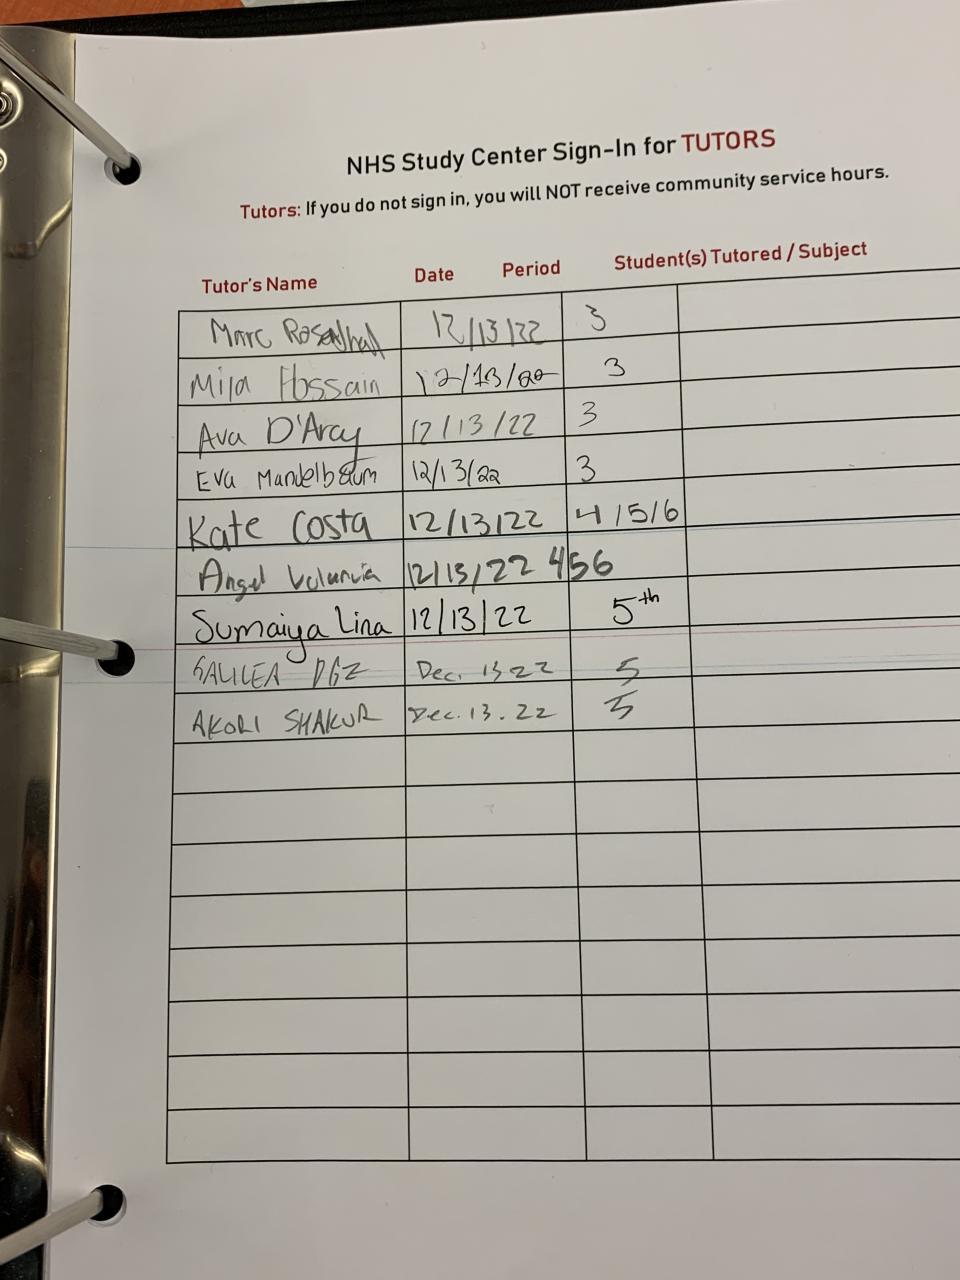 NHS Study Center Sign-In for TUTORS
Tutors: If you do not sign in, you will NOT receive community service hours.
Tutor's Name Date Period Student(s) Tutored / Subject
Marc Rosenthal 12/13/22 3
Mila Hossain 12/13/22 3
Ava D'Arcy 12/13/22 3
Eva Mandelbaum 12/13/22 3
Kate Costa 12/13/22 4/5/6
Angel 12/13/22 456
Sumaiya Lina 12/13/22 5th
GALILEA DGZ Dec. 13 22 5
AKORI SHAKUR Dec. 13. 22 5